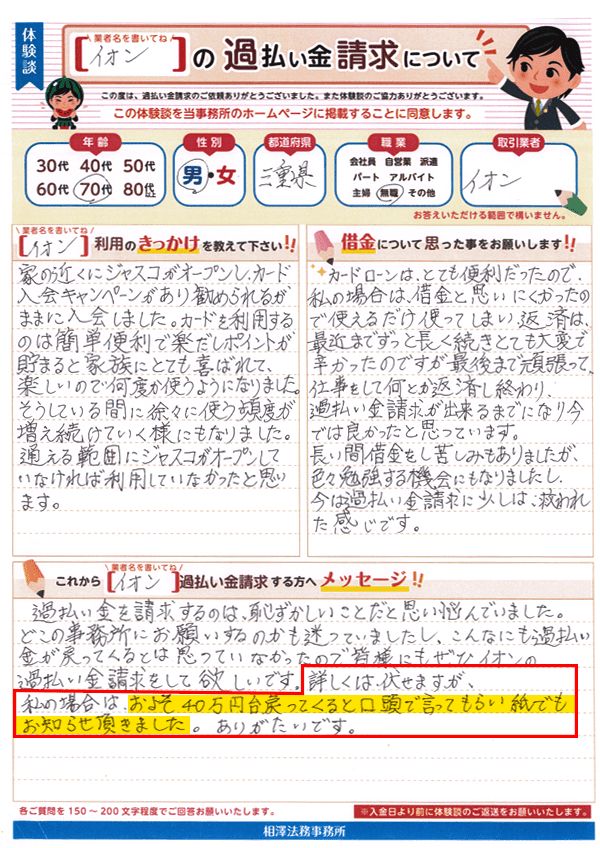 体験談
業者名を書いてね
[イオン]の過払い金請求について
この度は、過払い金請求のご依頼ありがとうございました。また体験談のご協力ありがとうございます。
この体験談を当事務所のホームページに掲載することに同意します。
年齢
30代 40代 50代
60代 70代 80代
性別
男・女
都道府県
三重県
職業
会社員 自営業 派遣
パート アルバイト
主婦 無職 その他
取引業者
イオン
お答えいただける範囲で構いません。
業者名を書いてね
[イオン]利用のきっかけを教えて下さい!!
家の近くにジャスコがオープンし、カード
入会キャンペーンがあり勧められるが
ままに入会しました。カードを利用する
のは簡単便利で楽だしポイントが
貯まると家族にとても喜ばれて、
楽しいので何度か使うようになりました。
そうしている間に徐々に使う頻度が
増え続けていく様にもなりました。
通える範囲にジャスコがオープンして
いなければ利用していなかったと思い
ます。
借金について思った事をお願いします!!
カードローンは、とても便利だったので、
私の場合は、借金と思いにくかったの
で使えるだけ使ってしまい返済は、
最近までずっと長く続きとても大変で
辛かったのですが最後まで頑張って、
仕事をして何とか返済し終わり、
過払い金請求が出来るまでになり今
では良かったと思っています。
長い間借金をし苦しみもありましたが、
色々勉強する機会にもなりましたし、
今は過払い金請求に少しは、救われ
た感じです。
業者名を書いてね
これから[イオン]過払い金請求する方へメッセージ!!
過払い金を請求するのは、恥ずかしいことだと思い悩んでいました。
どこの事務所にお願いするのかも迷っていましたし、こんなにも過払い
金が戻ってくるとは思っていなかったので皆様にもぜひイオンの
過払い金請求をして欲しいです。詳しくは、伏せますが、
私の場合は、およそ40万円台戻ってくると口頭で言ってもらい紙でも
お知らせ頂きました。ありがたいです。
各ご質問を150～200文字程度でご回答お願いいたします。
※入金日より前に体験談のご返送をお願いいたします。
相澤法務事務所